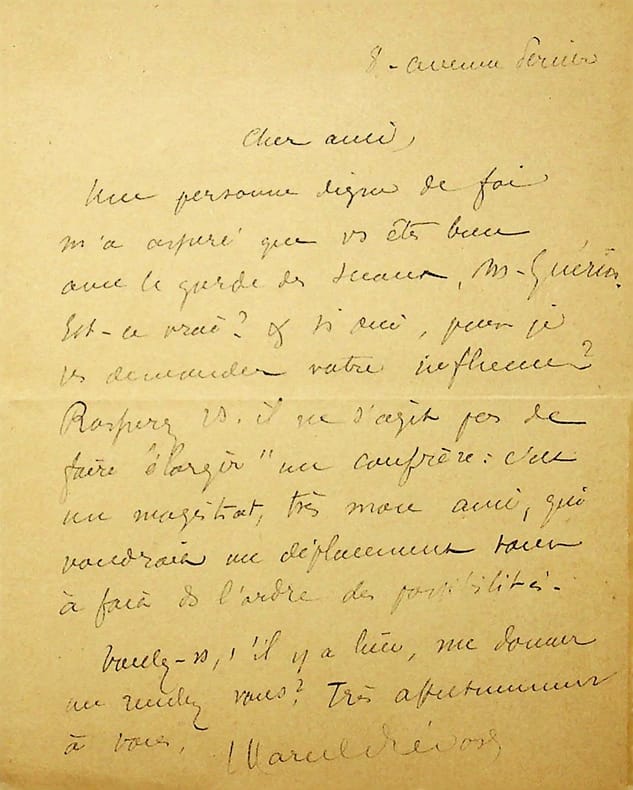 8 - avenue Percier
Cher ami,
Une personne digne de foi
m'a assuré que vs êtes bien
avec le garde des sceaux, M. Guérin.
Est-ce vrai? & si oui, puis je
vs demander votre influence?
Rassurez vs. il ne s'agit pas de
faire "élargir" un confrère : c'est
un magistrat, très mon ami, qui
voudrait un déplacement tout
à fait ds l'ordre des possibilités.
Voulez-vs, s'il y a lieu, me donner
un rendez vous? Très affectueusement
à vous,
Marcel Prévost